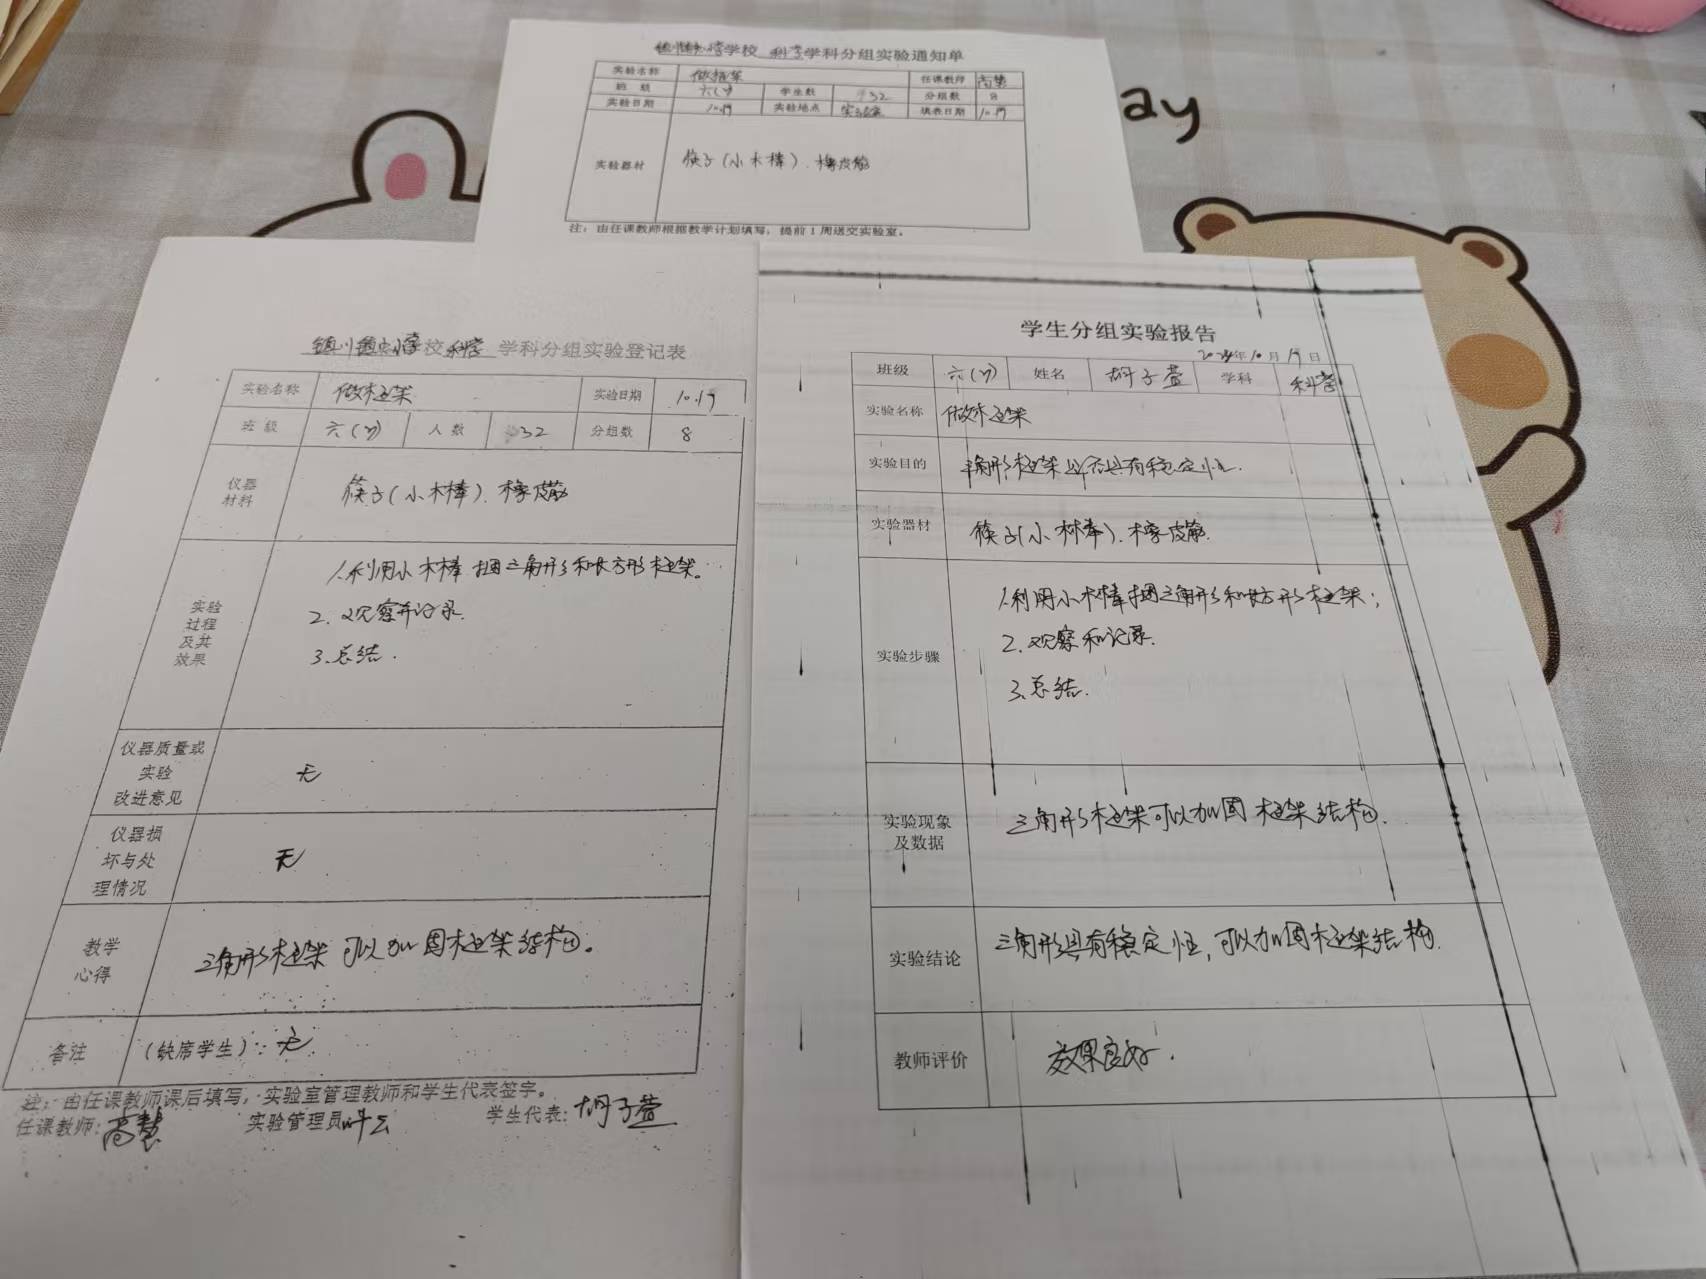 学校 科学学科分组实验通知单
实验名称 做框架 任课教师 高慧
班 级 学生数 32 分组数 8
实验日期 实验地点 实验室 填表日期
实验器材 筷子(小木棒).橡皮筋
注：由任课教师根据教学计划填写，提前1周送交实验室。
ay
校 科学 学科分组实验登记表
实验名称 做框架 实验日期
班 级 人 数 32 分组数 8
仪器
材料 筷子(小木棒).橡皮筋
实验
过程
及其
效果
1.利用小木棒捆三角形和长方形框架。
2.观察并记录.
3.总结.
仪器质量或
实验
改进意见
无
仪器损
坏与处
理情况
无
教学
心得
三角形框架可以加固框架结构。
备注 (缺席学生)：无.
注：由任课教师课后填写，实验室管理教师和学生代表签字。
任课教师：高慧 实验管理员 叶云 学生代表：胡子萱
学生分组实验报告
2024年10月 日
班级 姓名 胡子萱 学科 科学
实验名称 做框架
实验目的 三角形框架是否具有稳定性.
实验器材 筷子(小木棒).橡皮筋.
实验步骤
1.利用小木棒捆三角形和长方形框架;
2.观察和记录.
3.总结.
实验现象
及数据
三角形框架可以加固框架结构.
实验结论 三角形具有稳定性,可以加固框架结构.
教师评价 效果良好.